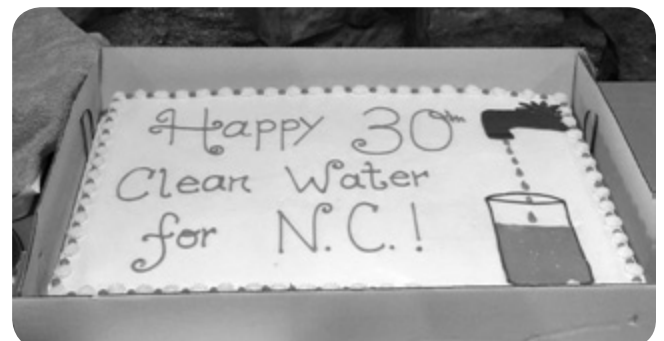 Happy 30th
Clean Water
for N.C.!